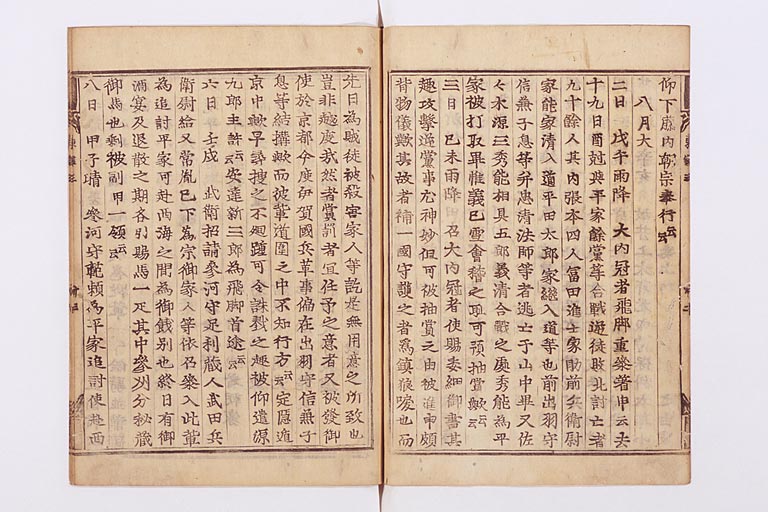 仰下廣内朝宗奉行云云
八月大
二日　戊午雨降　大内冠者飛脚重參著申云去
十九日酉剋與平家餘黨等合戰逆徒敗北討亡者
九十餘人其内張本四人冨田進士家助前兵衛尉
家能家清入道平田太郎家継入道等也前出羽守
信兼子息等并忠清法師等者逃亡于山中畢又佐
々木源三秀能相具五郎義清合戰之處秀能為平
家被打取畢惟義已雪會稽之耻可預抽賞歟云云
三日　己未雨降召大内冠者使賜委細御書其
趣攻擊逆黨事尤神妙但可被抽賞之由被進申頗
背物儀歟其故者補一國守護之者為鎮狼唳也而
先日為賊徒被殺害家人等訖是無用意之所致也
豈非越度哉然者賞罰者宜任予之意者又被發御
使於京都今度伊賀國兵革事偏在出羽守信兼子
息等結構歟而彼輩遁圍之中不知行方云云定隱遁
京中歟早尋捜之不廻踵可令誅戮之趣被仰遣源
九郎主許云云安達新三郎為飛脚首途云云
六日　壬戌　武衛招請參河守足利藏人武田兵
衛尉給又常胤已下為宗御家人等依召參入此輩
為追討平家可赴西海之間為御餞別也終日有御
酒宴及退散之期各引賜馬一疋其中參州分秘藏
御馬也剰被副甲一領云云
八日　甲子晴　參河守範頼為平家追討使赴西